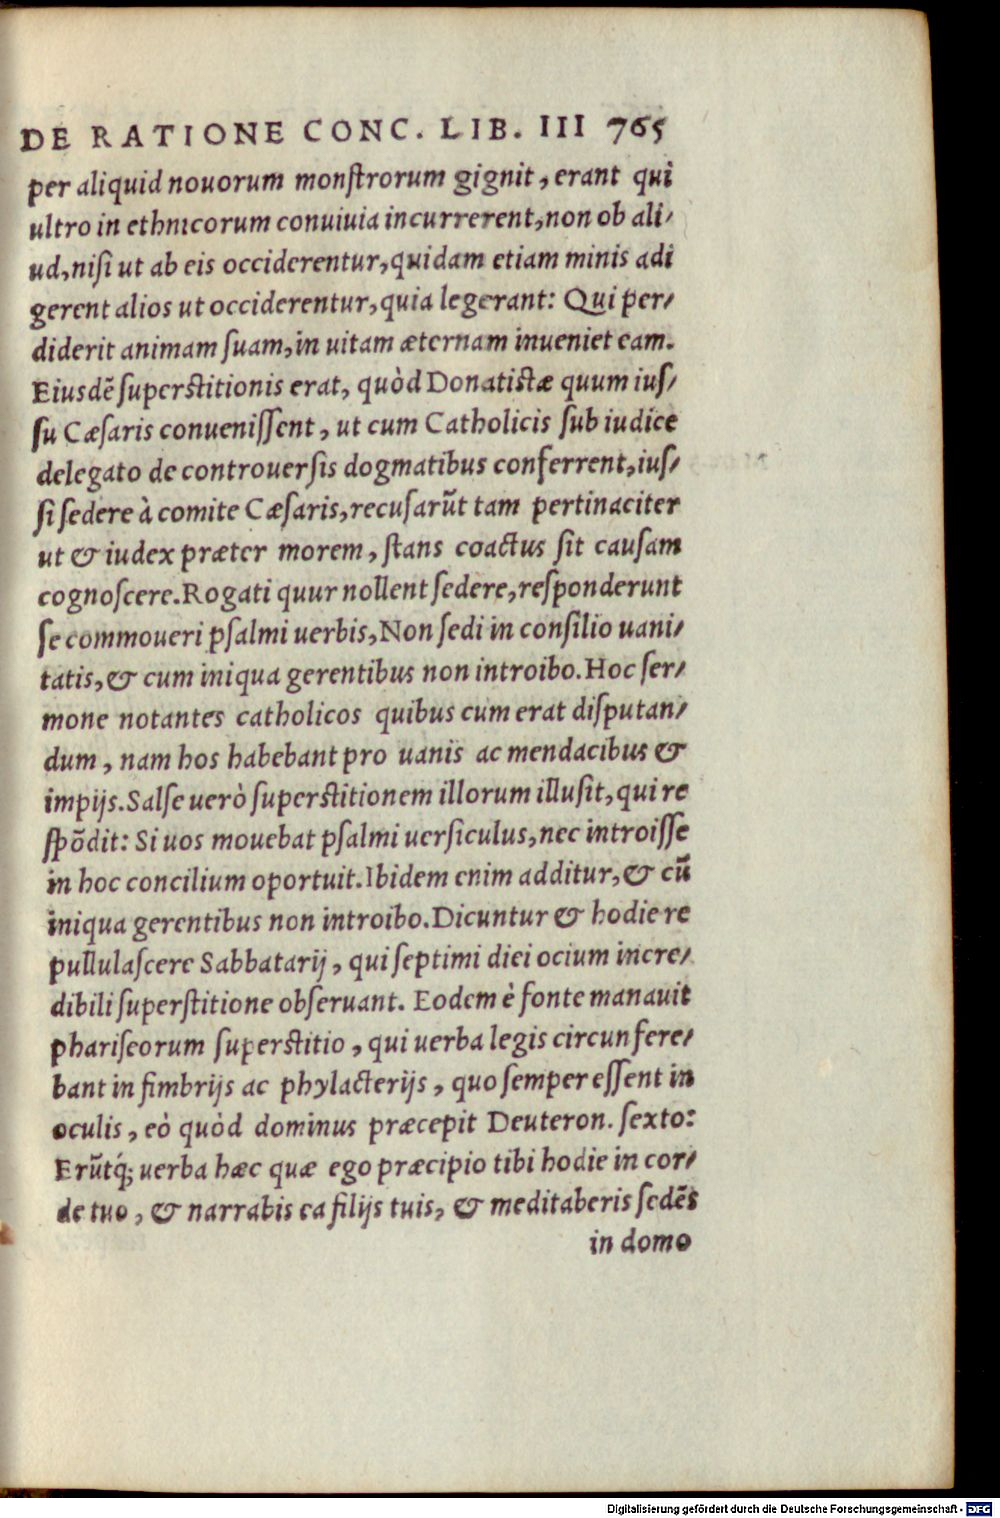 DE RATIONE CONC. LIB. III 765
per aliquid nouorum monſtrorum gignit, erant qui
ultro in ethnicorum conuiuia incurrerent, non ob ali-
ud, niſi ut ab eis occiderentur, quidam etiam minis adi
gerent alios ut occiderentur, quia legerant: Qui per-
diderit animam ſuam, in uitam æternam inueniet eam.
Eiusdẽ ſuperſtitionis erat, quòd Donatistæ quum iuſ-
ſu Cæſaris conueniſſent, ut cum Catholicis ſub iudice
delegato de controuerſis dogmatibus conferrent, iuſ-
ſi ſedere à comite Cæſaris, recuſarũt tam pertinaciter
ut & iudex præter morem, ſtans coactus ſit cauſam
cognoſcere. Rogati quur nollent ſedere, reſponderunt
ſe commoueri pſalmi uerbis, Non ſedi in conſilio uani-
tatis, & cum iniqua gerentibus non introibo. Hoc ſer-
mone notantes catholicos quibus cum erat diſputan-
dum, nam hos habebant pro uanis ac mendacibus &
impijs. Salſe uerò ſuperſtitionem illorum illuſit, qui re
ſpõdit: Si uos mouebat pſalmi uerſiculus, nec introiſſe
in hoc concilium oportuit. Ibidem enim additur, & cũ
iniqua gerentibus non introibo. Dicuntur & hodie re
pullulaſcere Sabbatarij, qui ſeptimi diei ocium incre-
dibili ſuperſtitione obſeruant. Eodem è fonte manauit
phariſeorum ſuperſtitio, qui uerba legis circunfere-
bant in fimbrijs ac phylacterijs, quo ſemper eſſent in
oculis, eò quòd dominus præcepit Deuteron. ſexto:
Erũtq́; uerba hæc quæ ego præcipio tibi hodie in cor-
de tuo, & narrabis ea filijs tuis, & meditaberis ſedẽs
in domo
Digitalisierung gefördert durch die Deutsche Forschungsgemeinschaft - DFG